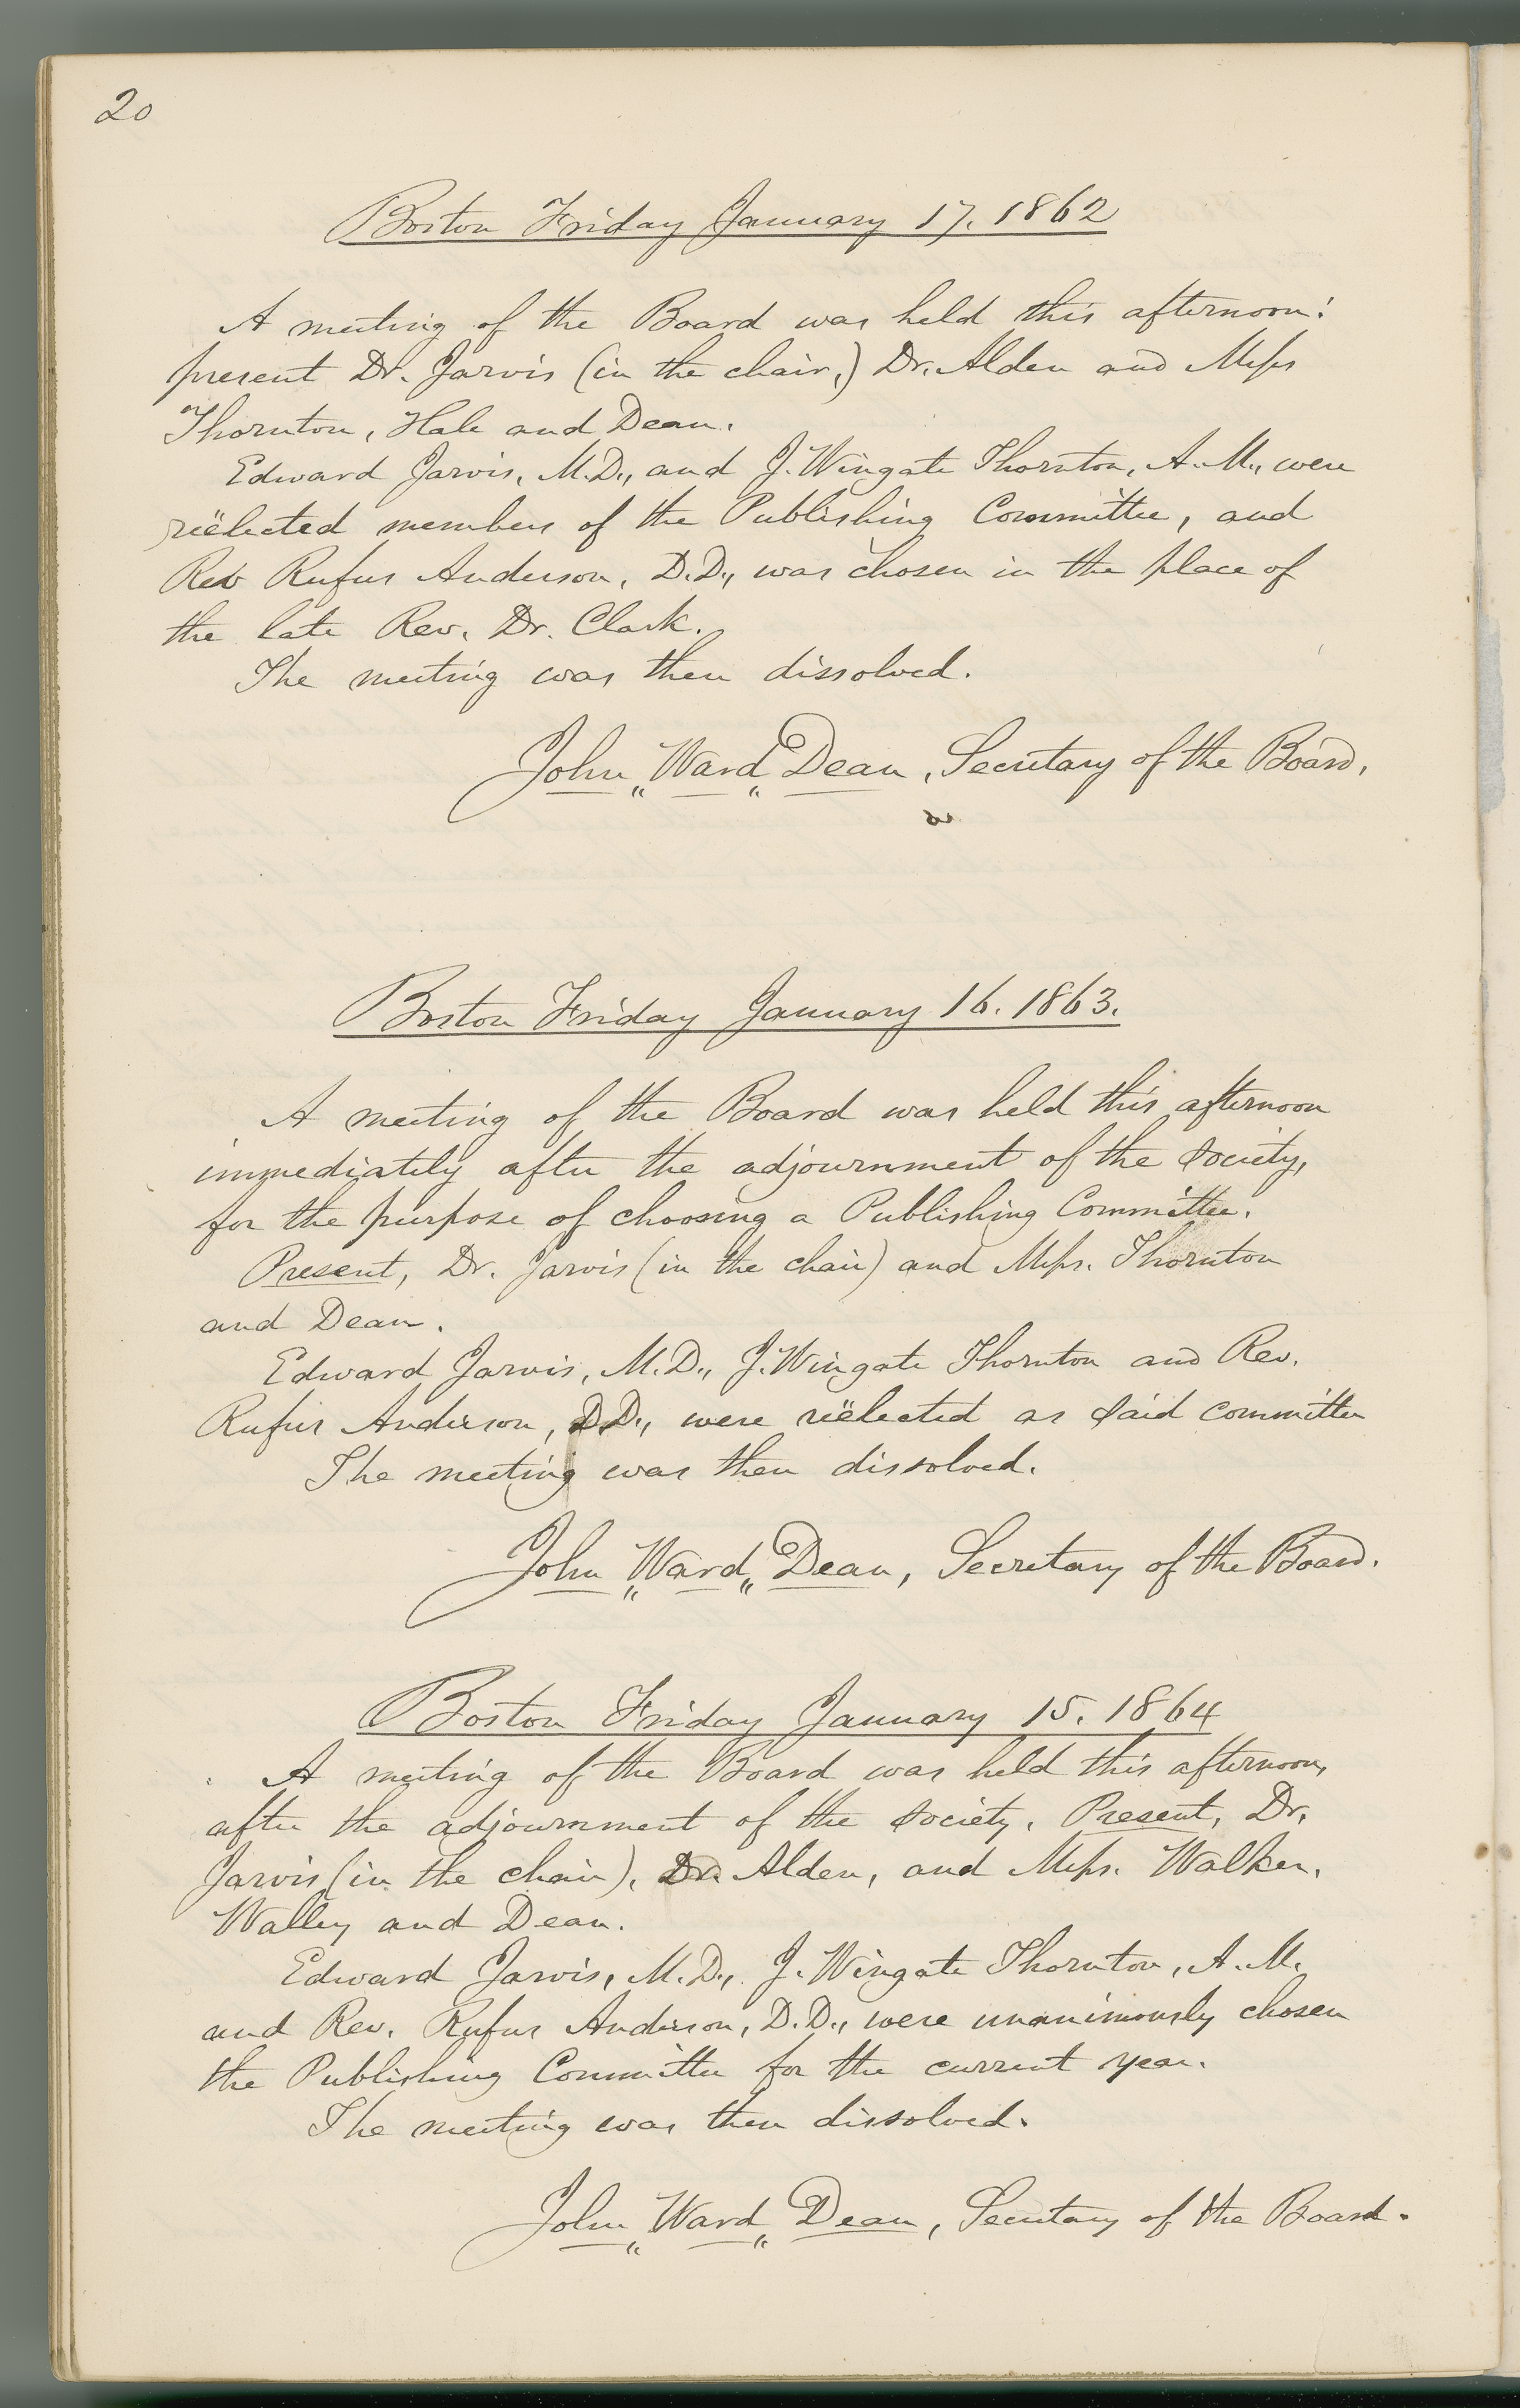 20
Boston Friday January 17. 1862
A meeting of the Board was held this afternoon:
present Dr. Jarvis (in the chair,) Dr. Alden and Messrs
Thornton, Hale and Dean.
Edward Jarvis, M.D., and J. Wingate Thornton, A.M., were
reëlected members of the Publishing Committee, and
Rev Rufus Anderson, D.D., was chosen in the place of
the late Rev. Dr. Clark.
The meeting was then dissolved.
John „ Ward „ Dean, Secretary of the Board.
Boston Friday January 16. 1863.
A meeting of the Board was held this afternoon
immediately after the adjournment of the Society,
for the purpose of choosing a Publishing Committee.
Present, Dr. Jarvis (in the chair) and Messrs. Thornton
and Dean.
Edward Jarvis, M.D., J. Wingate Thornton and Rev.
Rufus Anderson, D.D., were reëlected as said committee
The meeting was then dissolved.
John „ Ward „ Dean, Secretary of the Board.
Boston Friday January 15. 1864
A meeting of the Board was held this afternoon,
after the adjournment of the Society. Present, Dr.
Jarvis (in the chair), Dr. Alden, and Messrs. Walker,
Walley and Dean.
Edward Jarvis, M.D., J. Wingate Thornton, A.M.
and Rev. Rufus Anderson, D.D., were unanimously chosen
the Publishing Committee for the current year.
The meeting was then dissolved.
John „ Ward „ Dean, Secretary of the Board.